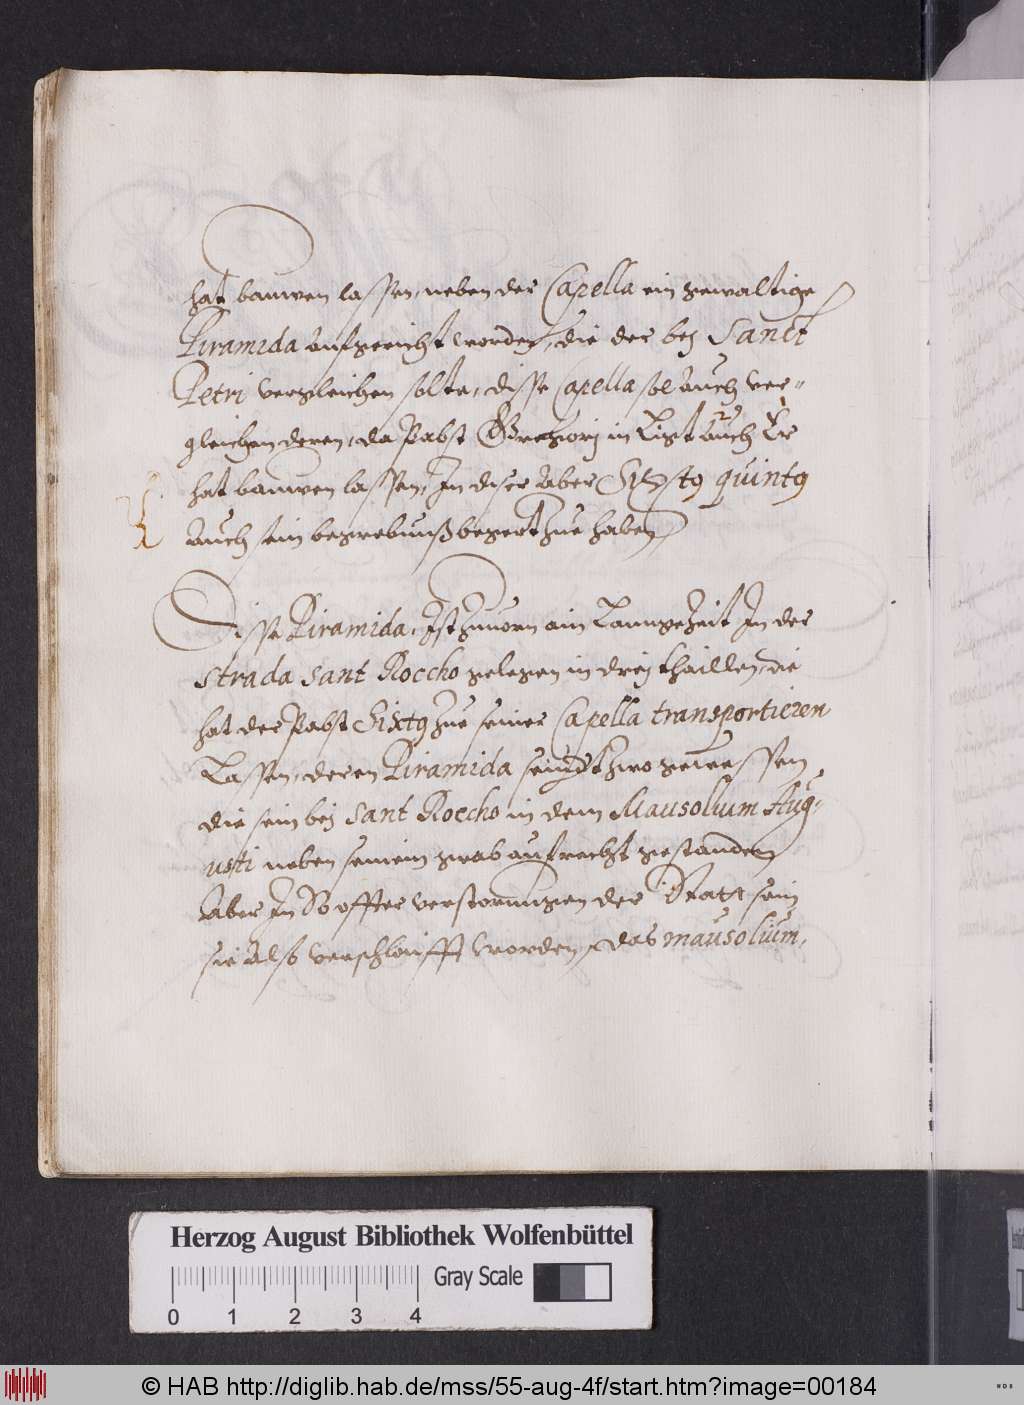 hat bauwen lassen, neben der Capella ein gewaltige
Piramida aufgericht worden, die der bej Sanct
Petri vergleichen solte, disse Capella sol auch ver-
gleichen deren, da Pabst Gregorj in ligt auch Er
hat bauwen lassen, In diser aber Sixtg quintg
auch sein begrebnuß begert zue haben
Disse Piramida, Ist zuuorn ain Lannge Zeit In der
strada sant Roccho gelegen in drej thaillen, die
hat der Pabst Sixtg zue seiner Capella transportieren
Lassen, deren Piramida seindt zwo gewessen
die sein bej sant Roccho in dem Mausolium Aug-
usti neben seinem grab aufrecht gestanden
Aber In So offter verstorungen der Statt sein
sie Also verschloufft worden, das mausolium,
Herzog August Bibliothek Wolfenbüttel
Gray Scale
0 1 2 3 4
© HAB http://diglib.hab.de/mss/55-aug-4f/start.htm?image=00184